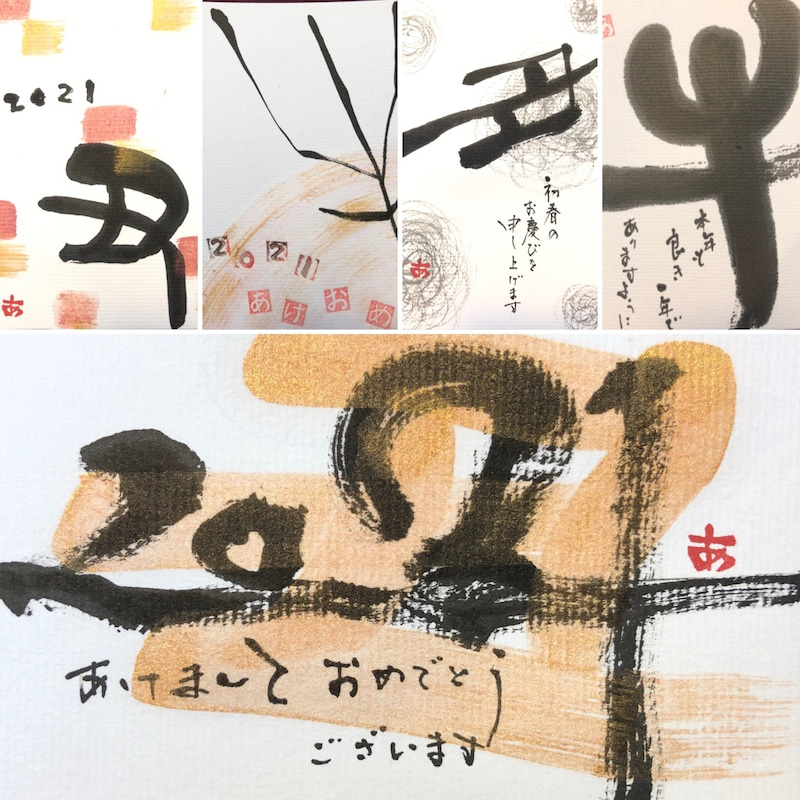 2021
丑
あ
2021
あけおめ
丑
初春の
お慶びを
申し上げます
あ
あ
牛
本年も
良き
一年で
ありますように
2021
あ
あけまして おめでとう
ございます